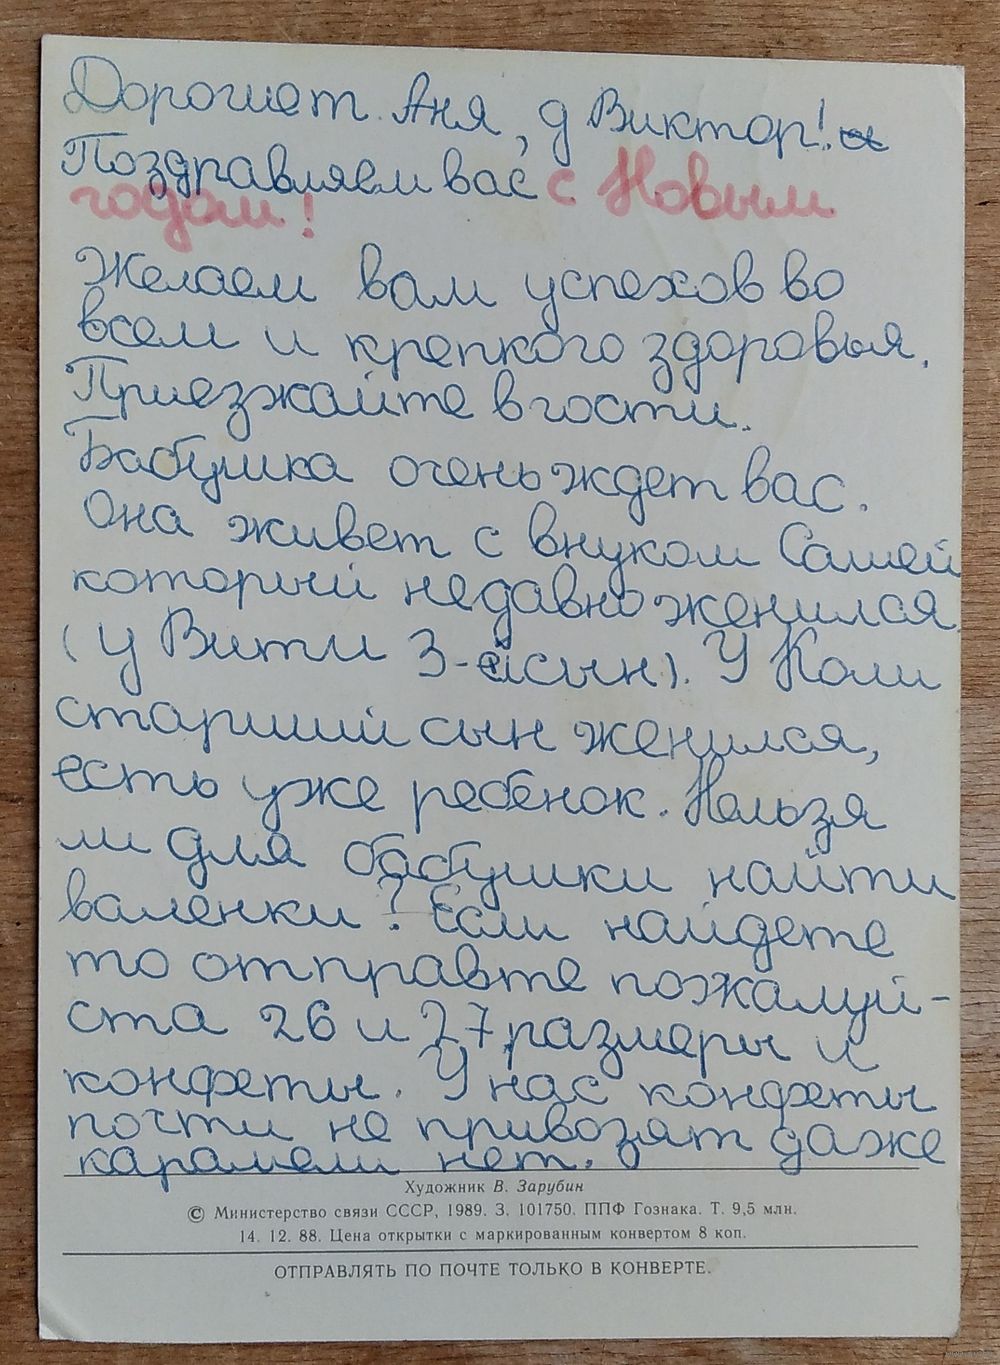 Дорогиет. Аня, д Виктор!
Поздравляем вас с Новым
годом!
Желаем вам успехов во
всем и крепкого здоровья.
Приезжайте в гости.
Бабушка очень ждет вас.
Она живет с внуком Сашей
который недавно женился
(у Вити 3-ейсын). У Коли
старший сын женился,
есть уже ребенок. Нельзя
ли для бабушки найти
валенки? Если найдете
то отправте пожалуй-
ста 26 и 27 размеры и
конфеты. У нас конфеты
почти не привозят даже
карамели нет.
Художник В. Зарубин
© Министерство связи СССР, 1989. З. 101750. ППФ Гознака. Т. 9,5 млн.
14. 12. 88. Цена открытки с маркированным конвертом 8 коп.
ОТПРАВЛЯТЬ ПО ПОЧТЕ ТОЛЬКО В КОНВЕРТЕ.